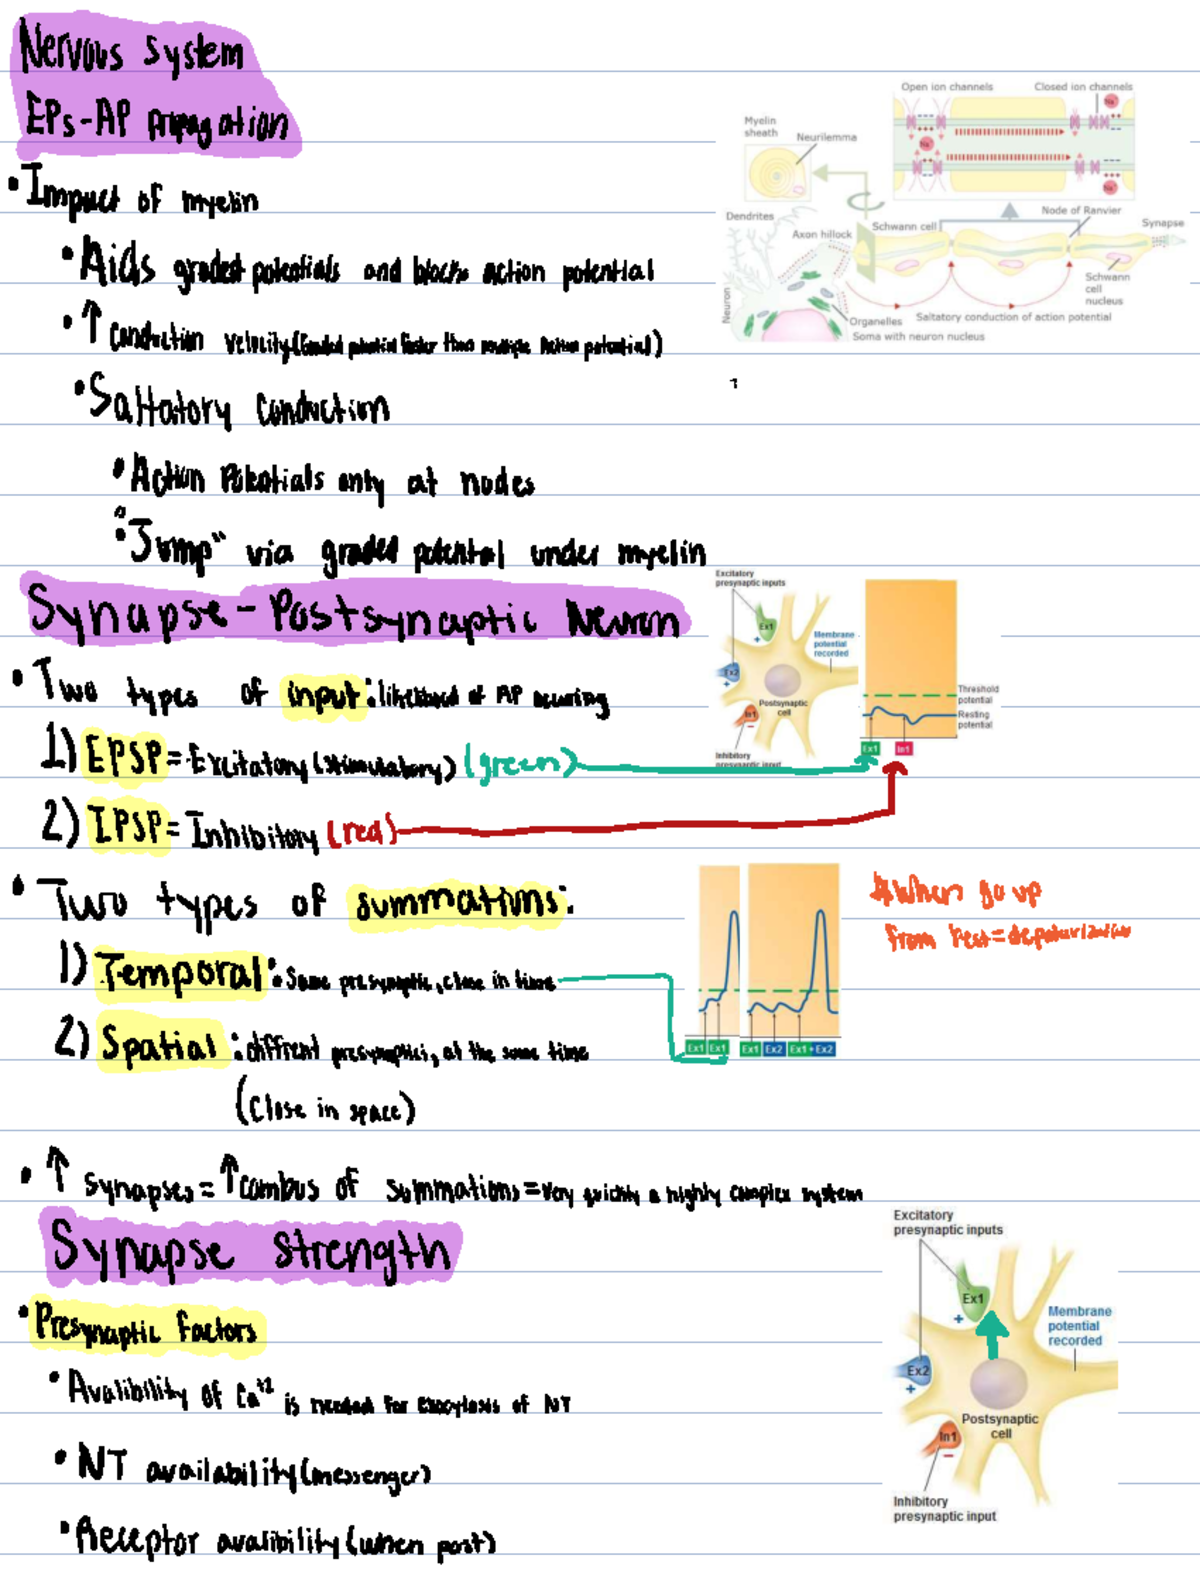 Nervous System
EPs-AP Propagation
• Impact of myelin
• Aids graded potentials and blocks action potential
• ↑ conduction velocity (Graded potential faster than multiple Action potential)
• Saltatory conduction
• Action Potentials only at nodes
• "Jump" via graded potental under myelin
Open ion channels
Closed ion channels
Na+
Na+
Na+
Myelin sheath
Neurilemma
Dendrites
Axon hillock
Schwann cell
Node of Ranvier
Synapse
Schwann cell nucleus
Neuron
Organelles
Saltatory conduction of action potential
Soma with neuron nucleus
Synapse - Postsynaptic Neuron
• Two types of input: likelihood of AP occuring
1) EPSP = Excitatory (stimulatory) (green)
2) IPSP = Inhibitory (red)
Excitatory presynaptic inputs
Ex1
+
Ex2
+
In1
−
Membrane potential recorded
Postsynaptic cell
Inhibitory presynaptic input
Threshold potential
Resting potential
Ex1
In1
• Two types of summations:
1) Temporal: Same presynaptic, close in time
2) Spatial: diffrent presynaptics, at the same time
(Close in space)
Ex1 Ex1
Ex1 Ex2 Ex1+Ex2
When go up
from rest = depolarization
• ↑ synapses = ↑ combus of summations = very quickly a highly complex system
Synapse strength
• Presynaptic factors
• Avalibility of Ca+2 is needed for exocytosis of NT
• NT availability (messenger)
• Receptor avalibility (when post)
Excitatory presynaptic inputs
Ex1
+
Ex2
+
In1
−
Membrane potential recorded
Postsynaptic cell
Inhibitory presynaptic input